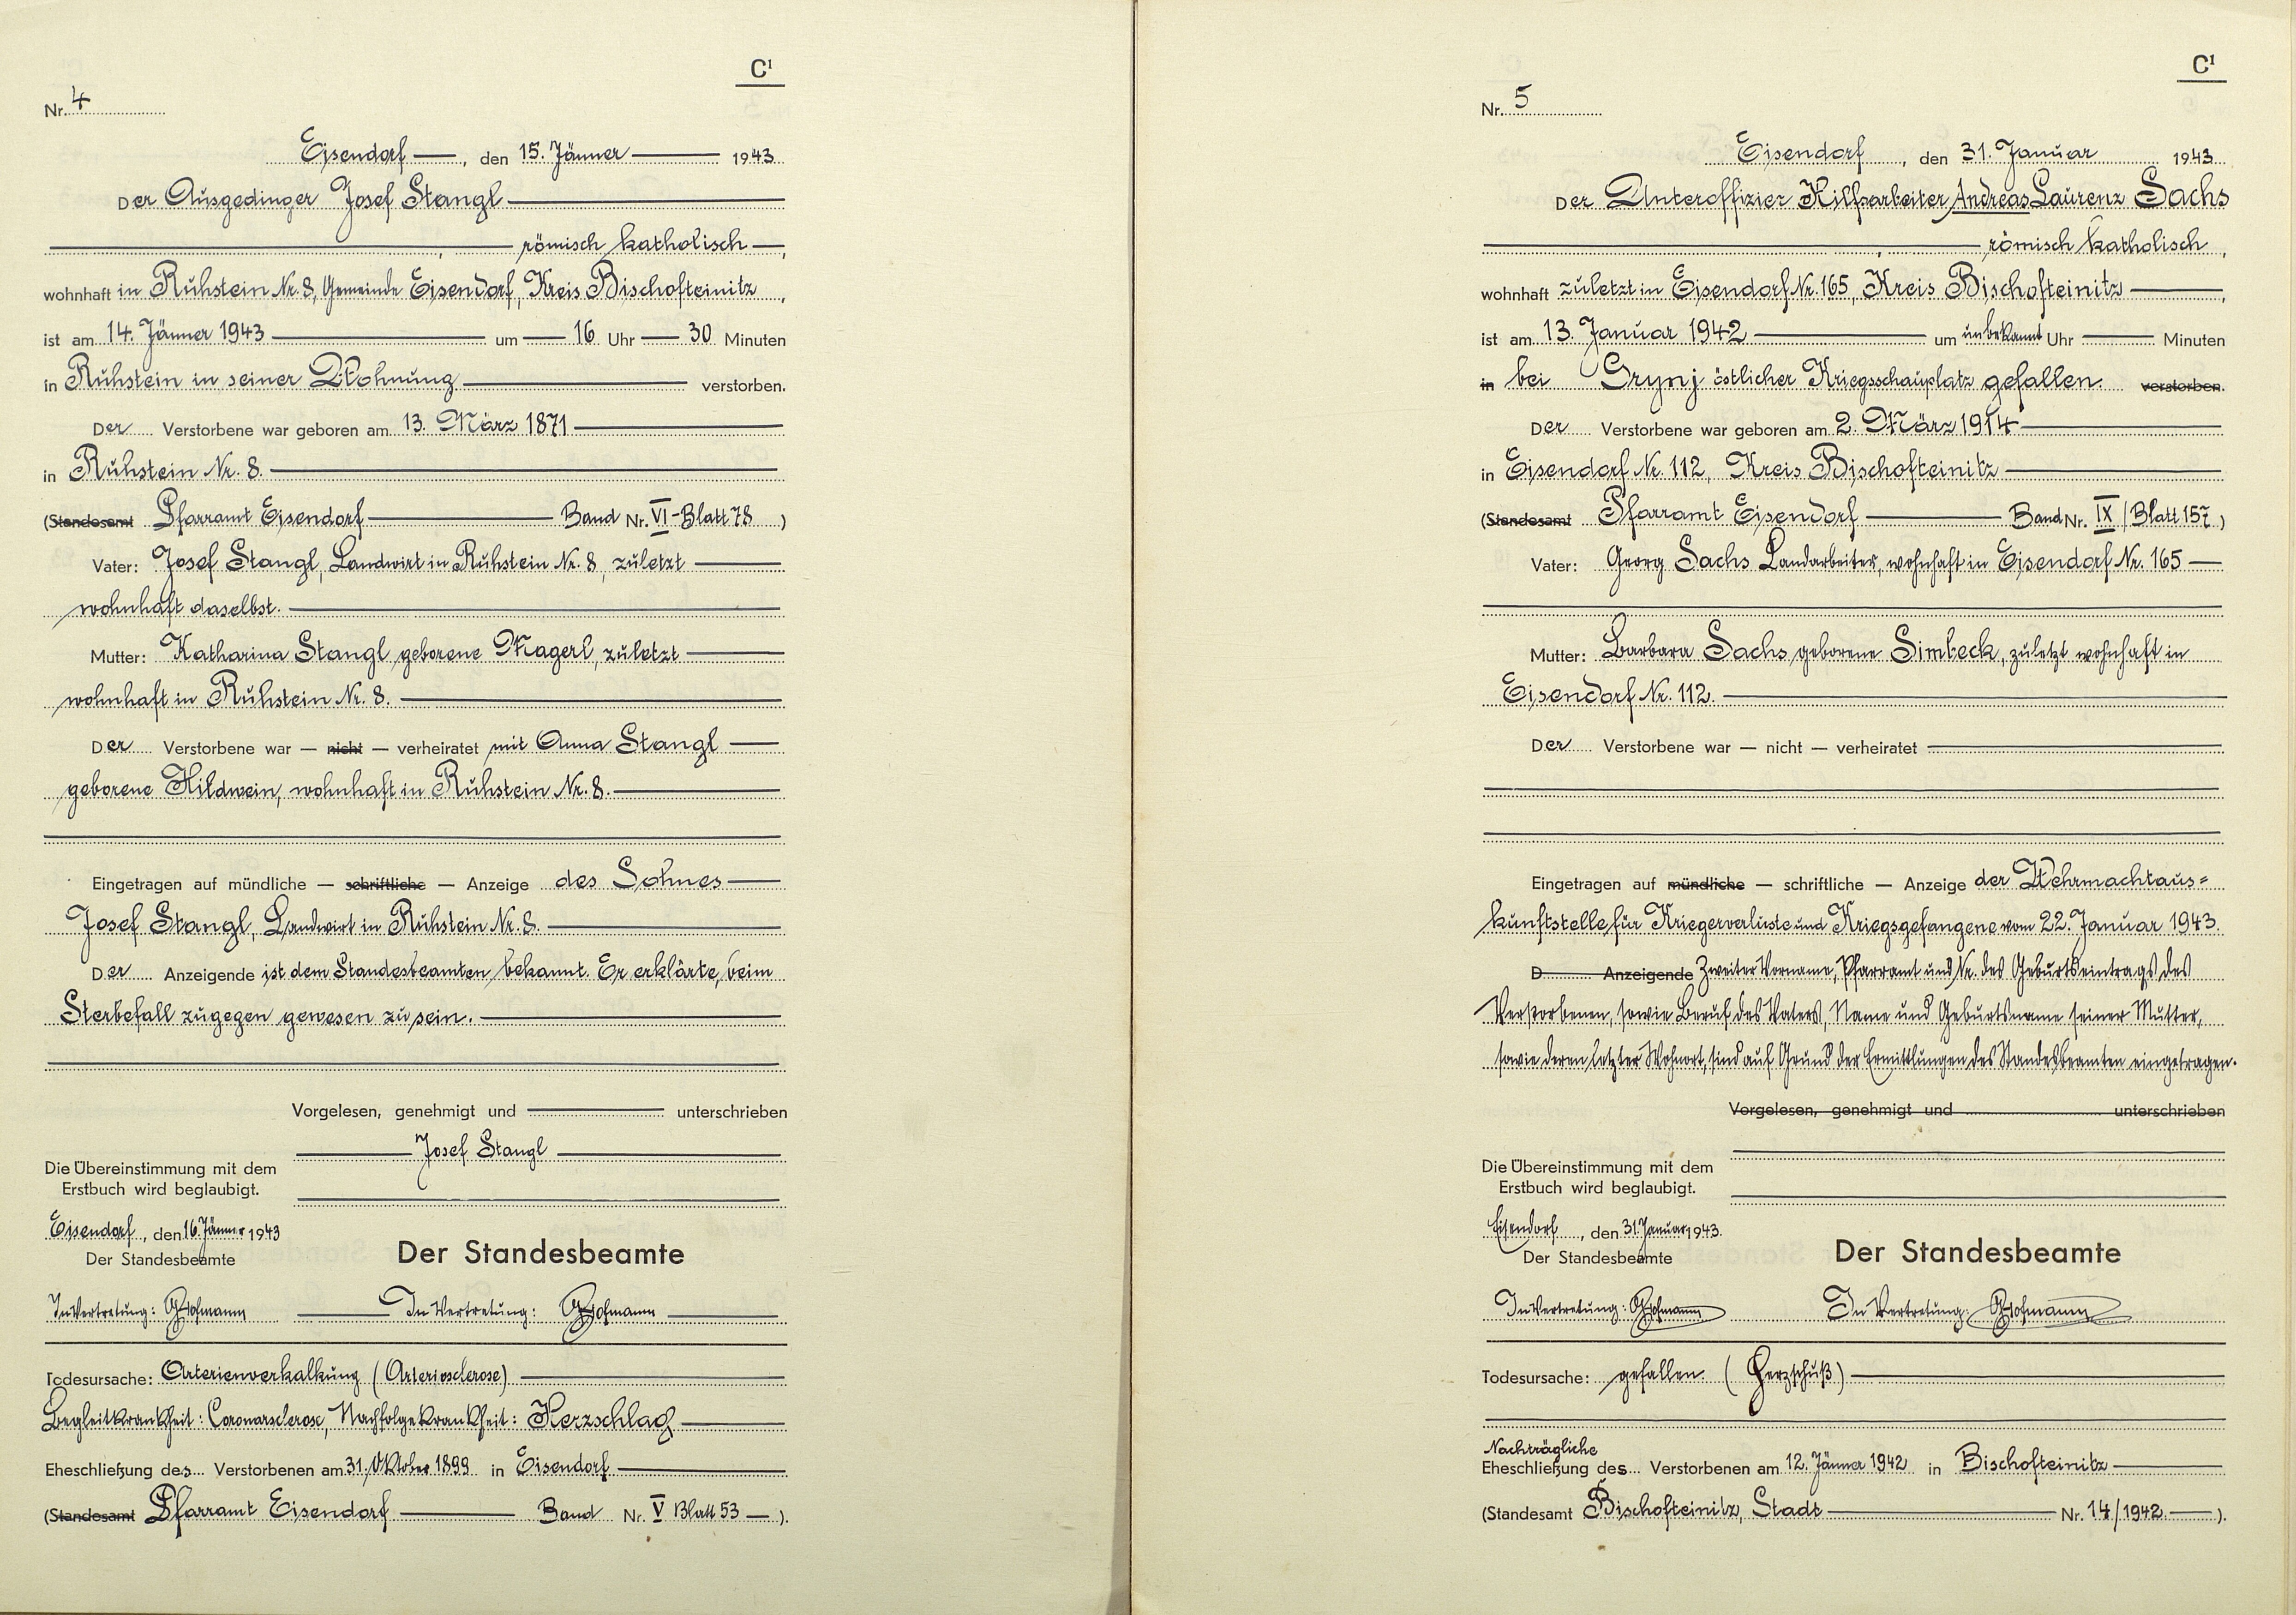 C¹
Nr. 4
Eisendorf, den 15. Jänner 1943
Der Ausgedinger Josef Stangl
, römisch katholisch,
wohnhaft in Ruhstein Nr. 8, Gemeinde Eisendorf, Kreis Bischofteinitz,
ist am 14. Jänner 1943 um 16 Uhr 30 Minuten
in Ruhstein in seiner Wohnung verstorben.
Der Verstorbene war geboren am 13. März 1871
in Ruhstein Nr. 8.
(Standesamt Pfarramt Eisendorf Band Nr. VI-Blatt 78)
Vater: Josef Stangl, Landwirt in Ruhstein Nr. 8, zuletzt
wohnhaft daselbst.
Mutter: Katharina Stangl geborene Magerl, zuletzt
wohnhaft in Ruhstein Nr. 8.
Der Verstorbene war — nicht — verheiratet mit Anna Stangl
geborene Hildwein, wohnhaft in Ruhstein Nr. 8.
Eingetragen auf mündliche — schriftliche — Anzeige des Sohnes
Josef Stangl, Landwirt in Ruhstein Nr. 8.
Der Anzeigende ist dem Standesbeamten bekannt. Er erklärte, beim
Sterbefall zugegen gewesen zu sein.
Vorgelesen, genehmigt und unterschrieben
Josef Stangl
Die Übereinstimmung mit dem
Erstbuch wird beglaubigt.
Eisendorf, den 16. Jänner 1943
Der Standesbeamte
Der Standesbeamte
In Vertretung: Hofmann
In Vertretung: Hofmann
Todesursache: Arterienverkalkung (Arteriosclerose)
Begleitkrankheit: Coronarsclerose, Nachfolgekrankheit: Herzschlag
Eheschließung des Verstorbenen am 31. Oktober 1899 in Eisendorf
(Standesamt Pfarramt Eisendorf Band Nr. V Blatt 53).
C¹
Nr. 5
Eisendorf, den 31. Januar 1943
Der Unteroffizier Hilfsarbeiter Andreas Laurenz Sachs
, römisch katholisch,
wohnhaft zuletzt in Eisendorf Nr. 165, Kreis Bischofteinitz,
ist am 13. Januar 1942 um unbekannt Uhr Minuten
in bei Grynj östlicher Kriegsschauplatz gefallen. verstorben.
Der Verstorbene war geboren am 2. März 1914
in Eisendorf Nr. 112, Kreis Bischofteinitz
(Standesamt Pfarramt Eisendorf Band Nr. IX/Blatt 157)
Vater: Georg Sachs Landarbeiter, wohnhaft in Eisendorf Nr. 165
Mutter: Barbara Sachs geborene Simbeck, zuletzt wohnhaft in
Eisendorf Nr. 112.
Der Verstorbene war — nicht — verheiratet
Eingetragen auf mündliche — schriftliche — Anzeige der Wehrmachtaus=
kunftstelle für Kriegerverluste und Kriegsgefangene vom 22. Januar 1943.
D Anzeigende Zweiter Vorname, Pfarramt und Nr. des Geburtseintrags des
Verstorbenen, sowie Beruf des Vaters, Name und Geburtsname seiner Mutter,
sowie deren letzter Wohnort, sind auf Grund der Ermittlungen des Standesbeamten eingetragen.
Vorgelesen, genehmigt und unterschrieben
Die Übereinstimmung mit dem
Erstbuch wird beglaubigt.
Eisendorf, den 31. Januar 1943.
Der Standesbeamte
Der Standesbeamte
In Vertretung: Hofmann
In Vertretung: Hofmann
Todesursache: gefallen. (Herzschuß)
Nachträgliche
Eheschließung des Verstorbenen am 12. Jänner 1942 in Bischofteinitz
(Standesamt Bischofteinitz, Stadt Nr. 14/1942).